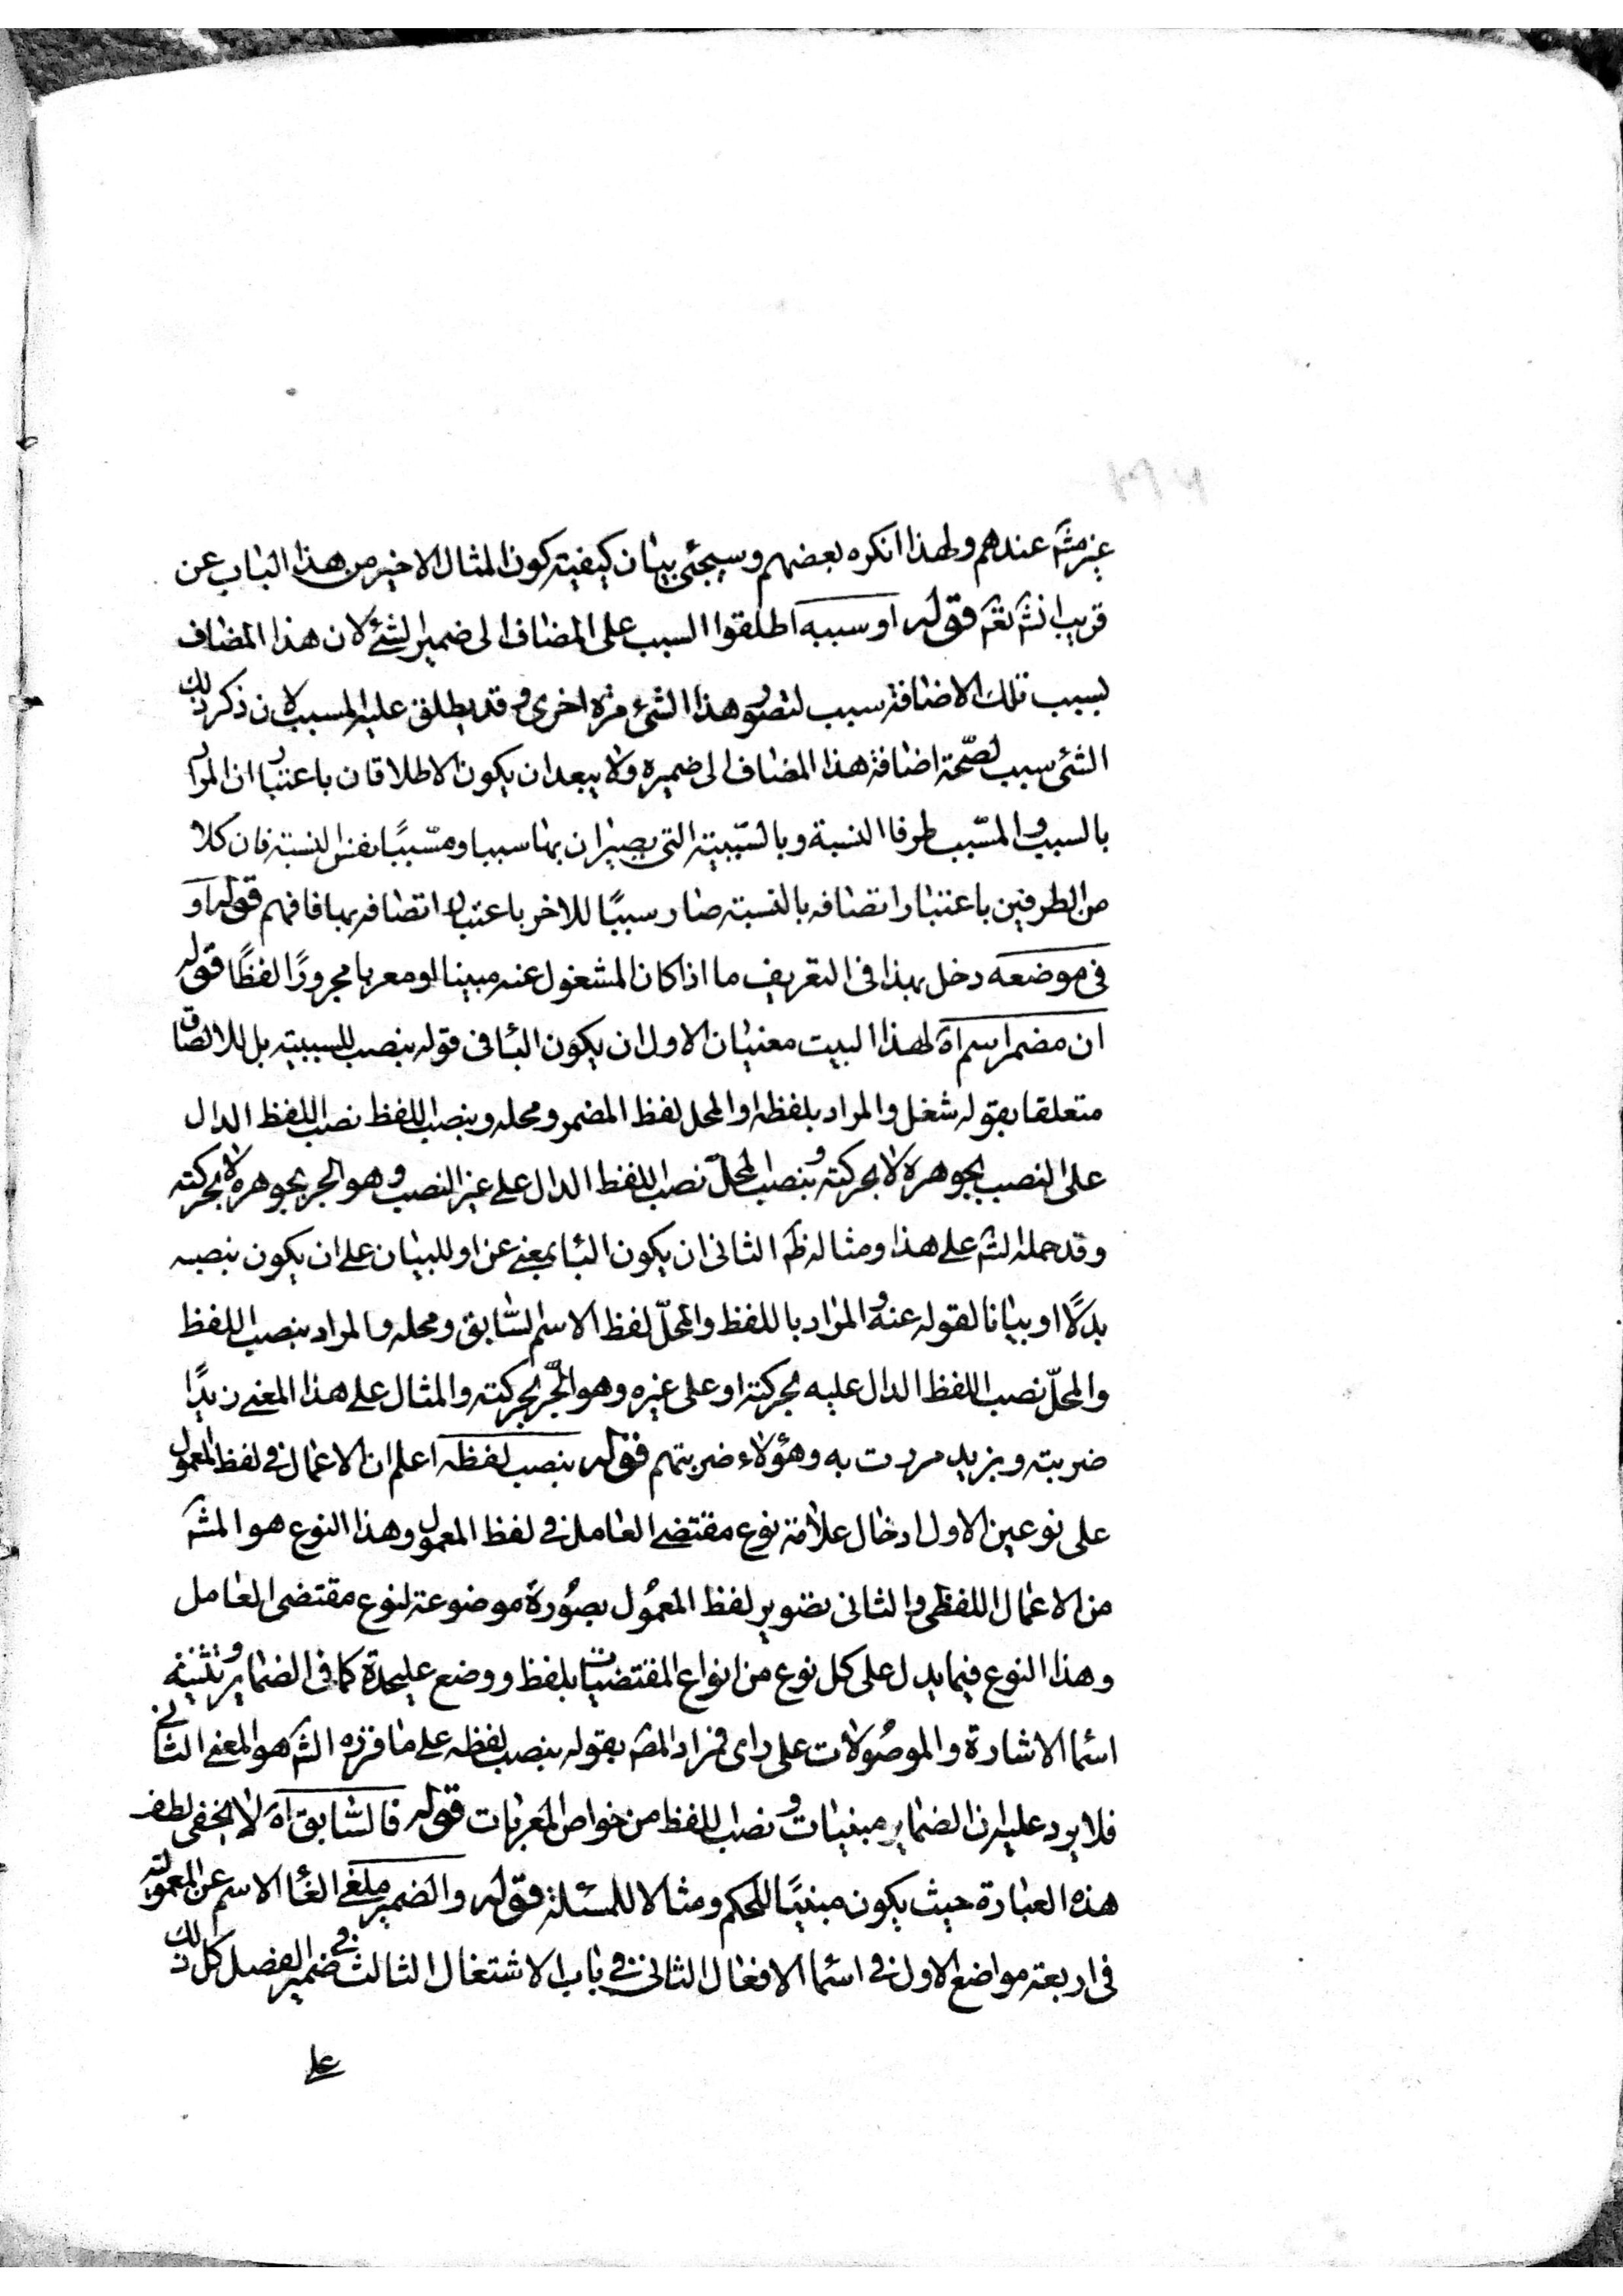 غير مشه عندهم ولهذا انكره بعضهم وسيجئ بيان كيفية كون المثال الاخير من هذا الباب عن
قريب انشه تعه قوله او سببه اطلقوا السبب على المضاف الى ضمير الشئ لان هذا المضاف
بسبب تلك الاضافة سبب لتصور هذا الشئ مرة اخرى وقد يطلق عليه المسبب لان ذكر ذلك
الشئ سبب لصحّة اضافة هذا المضاف الى ضميره ولا يبعد ان يكون الاطلاقان باعتبار ان المراد
بالسبب والمسّبب طرفا النسبة وبالسّببية التى يصيران بها سببا ومسّببًا نفس النسبة فان كلا
من الطرفين باعتبار اتصافه بالنسبة صار سببًا للاخر باعتبار اتصافه بها فافهم قوله او
فى موضعه دخل بهذا فى التعريف ما اذا كان المشغول عنه مبينا او معربا مجرورًا لفظًا قوله
ان مضمر اسم اه لهذا البيت معنيان الاول ان يكون البا فى قوله بنصب للسببية بل للالصاق
متعلقا بقوله شغل والمراد بلفظه او المحل لفظ المضمر ومحله وبنصب اللفظ نصب اللفظ الدال
على النصب بجوهره لا بحركته وبنصب المحلّ نصب اللفظ الدال على غير النصب وهو الجر بجوهره لا بحركته
وقد حمله الشه على هذا ومثاله ظه الثانى ان يكون البا بمعنى عن او للبيان على ان يكون بنصبه
بدلًا او بيانا لقوله عنه والمراد باللفظ والمحلّ لفظ الاسم السّابق ومحله والمراد بنصب اللفظ
والمحلّ نصب اللفظ الدال عليه بحركته او على غيره وهو الجّر بحركته والمثال على هذا المعنى زيدًا
ضربته وبزيد مررت به وهؤلاء ضربتهم قوله بنصب لفظه اعلم ان الاعمال فى لفظ المعمول
على نوعين الاول ادخال علامة نوع مقتضى العامل فى لفظ المعمول وهذا النوع هو المشه
من الاعمال اللفظى والثانى تصوير لفظ المعمُول بصُورة موضوعة لنوع مقتضى العامل
وهذا النوع فيما يدل على كل نوع من انواع المقتضيات بلفظ ووضع عليحدة كما فى الضماير وتثنية
اسما الاشارة والموصُولات على راى فمراد المصه بقوله بنصب لفظه على ما قرره الشه هو المعنى الثانى
فلا يرد عليه ان الضماير مبنيات ونصب اللفظ من خواص المعربات قوله فالسّابق اه لا يخفى لطف
هذه العبارة حيث يكون مبنيًا للحكم ومثالا للمسئلة قوله والضمير ملغى الغا الاسم عن المعمولية
فى اربعة مواضع الاول فى اسما الافعال الثانى فى باب الاشتغال الثالث فى ضمير الفصل كل ذلك
على